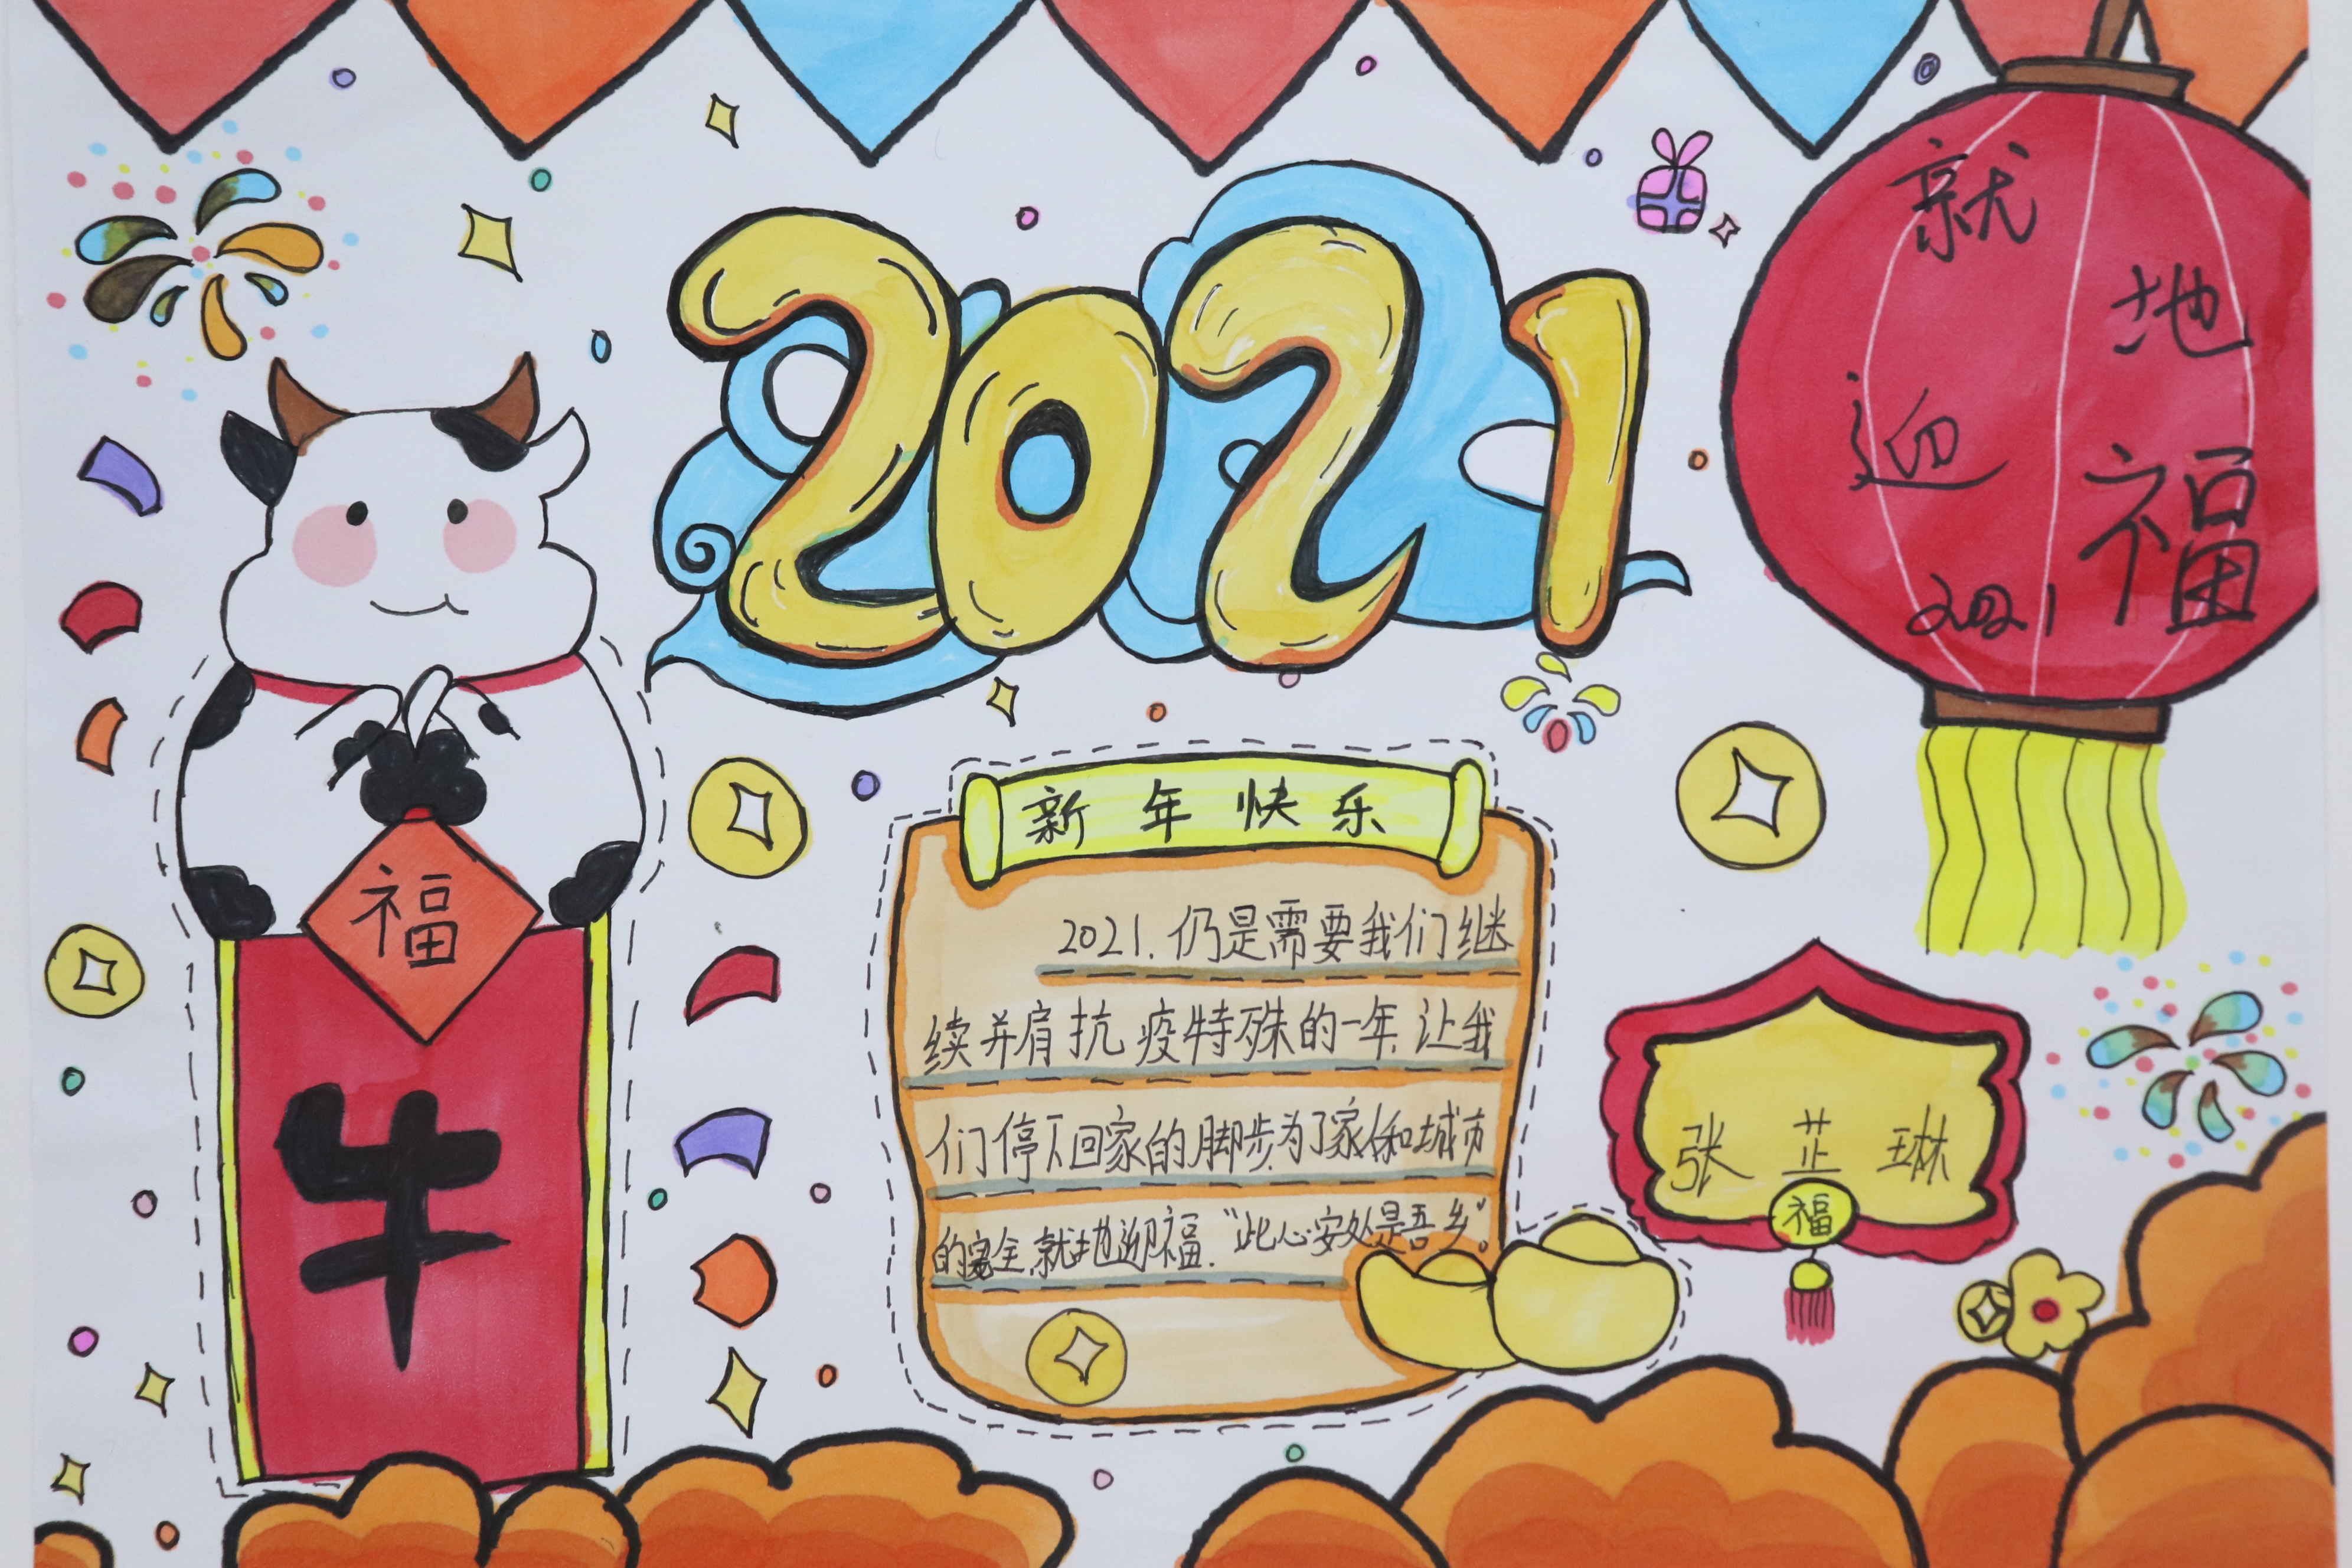 2021
就
地
迎
福
2021
新年快乐
2021.仍是需要我们继
续并肩抗疫特殊的一年,让我
们停下回家的脚步,为了家和城市
的安全,就地迎福.“此心安处是吾乡”。
福
牛
张芷琳
福